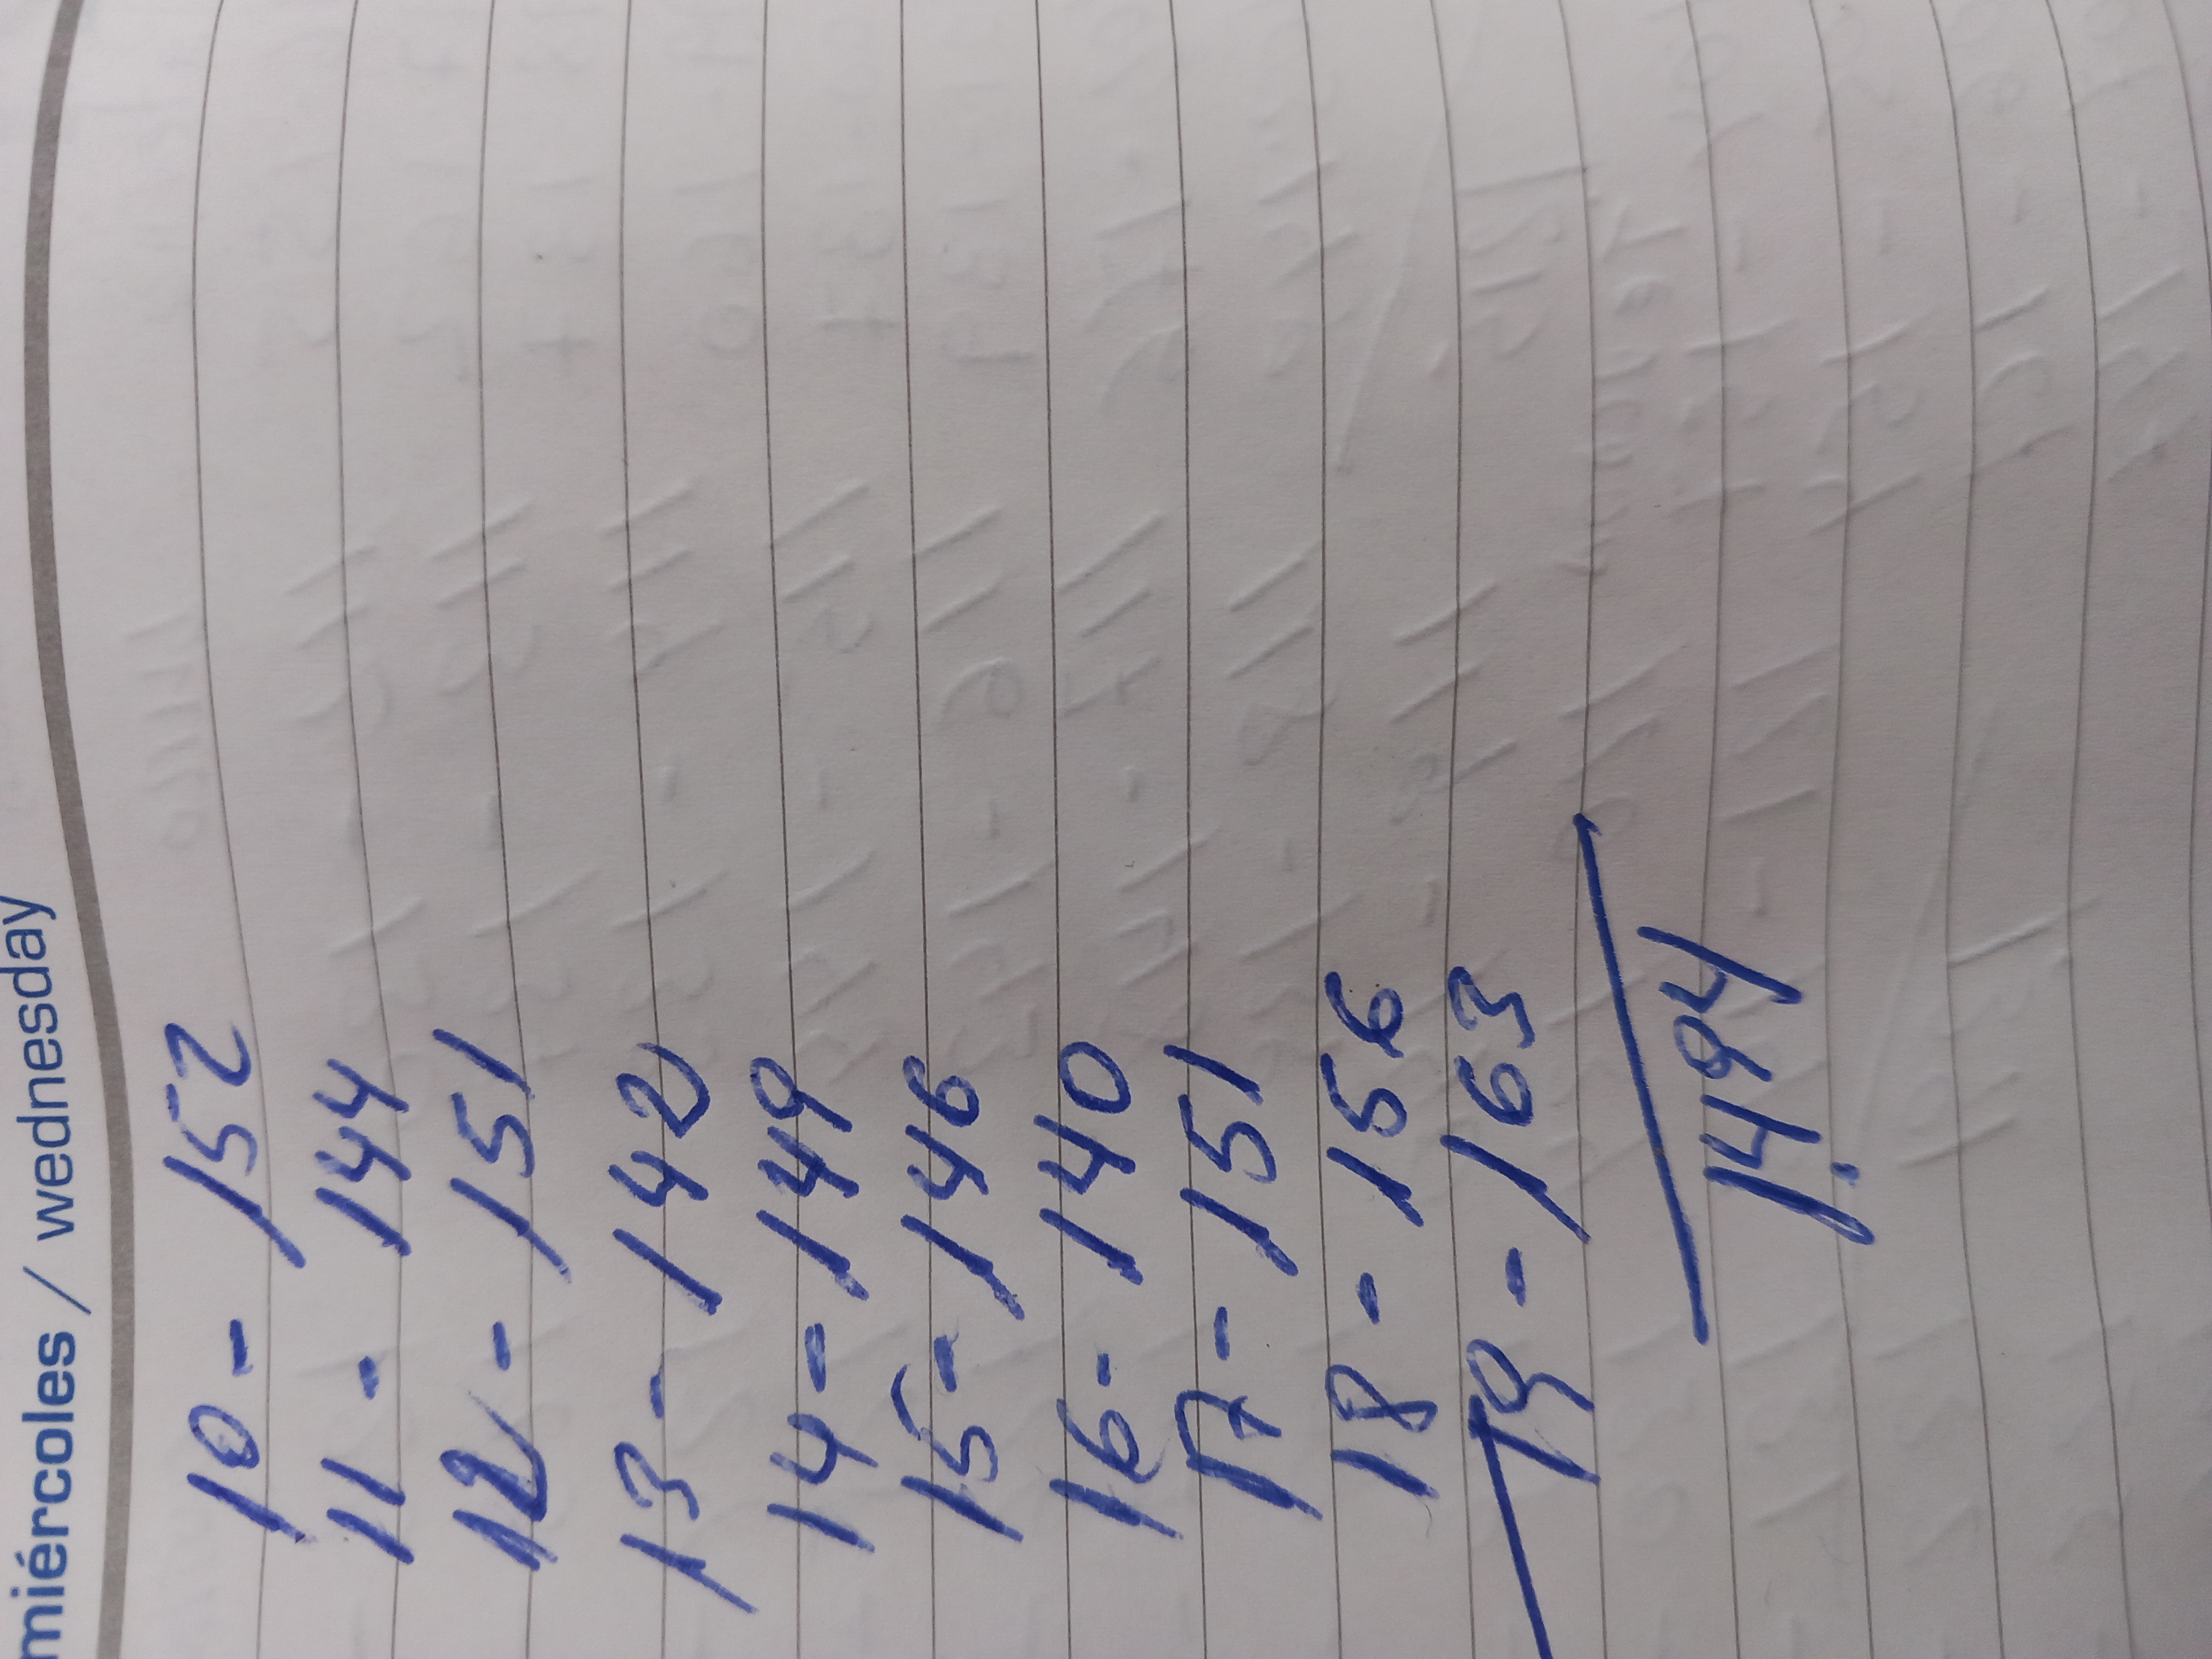 miércoles / wednesday
10 - 152
11 - 144
12 - 151
13 - 142
14 - 149
15 - 146
16 - 140
17 - 151
18 - 156
19 - 163
1.494